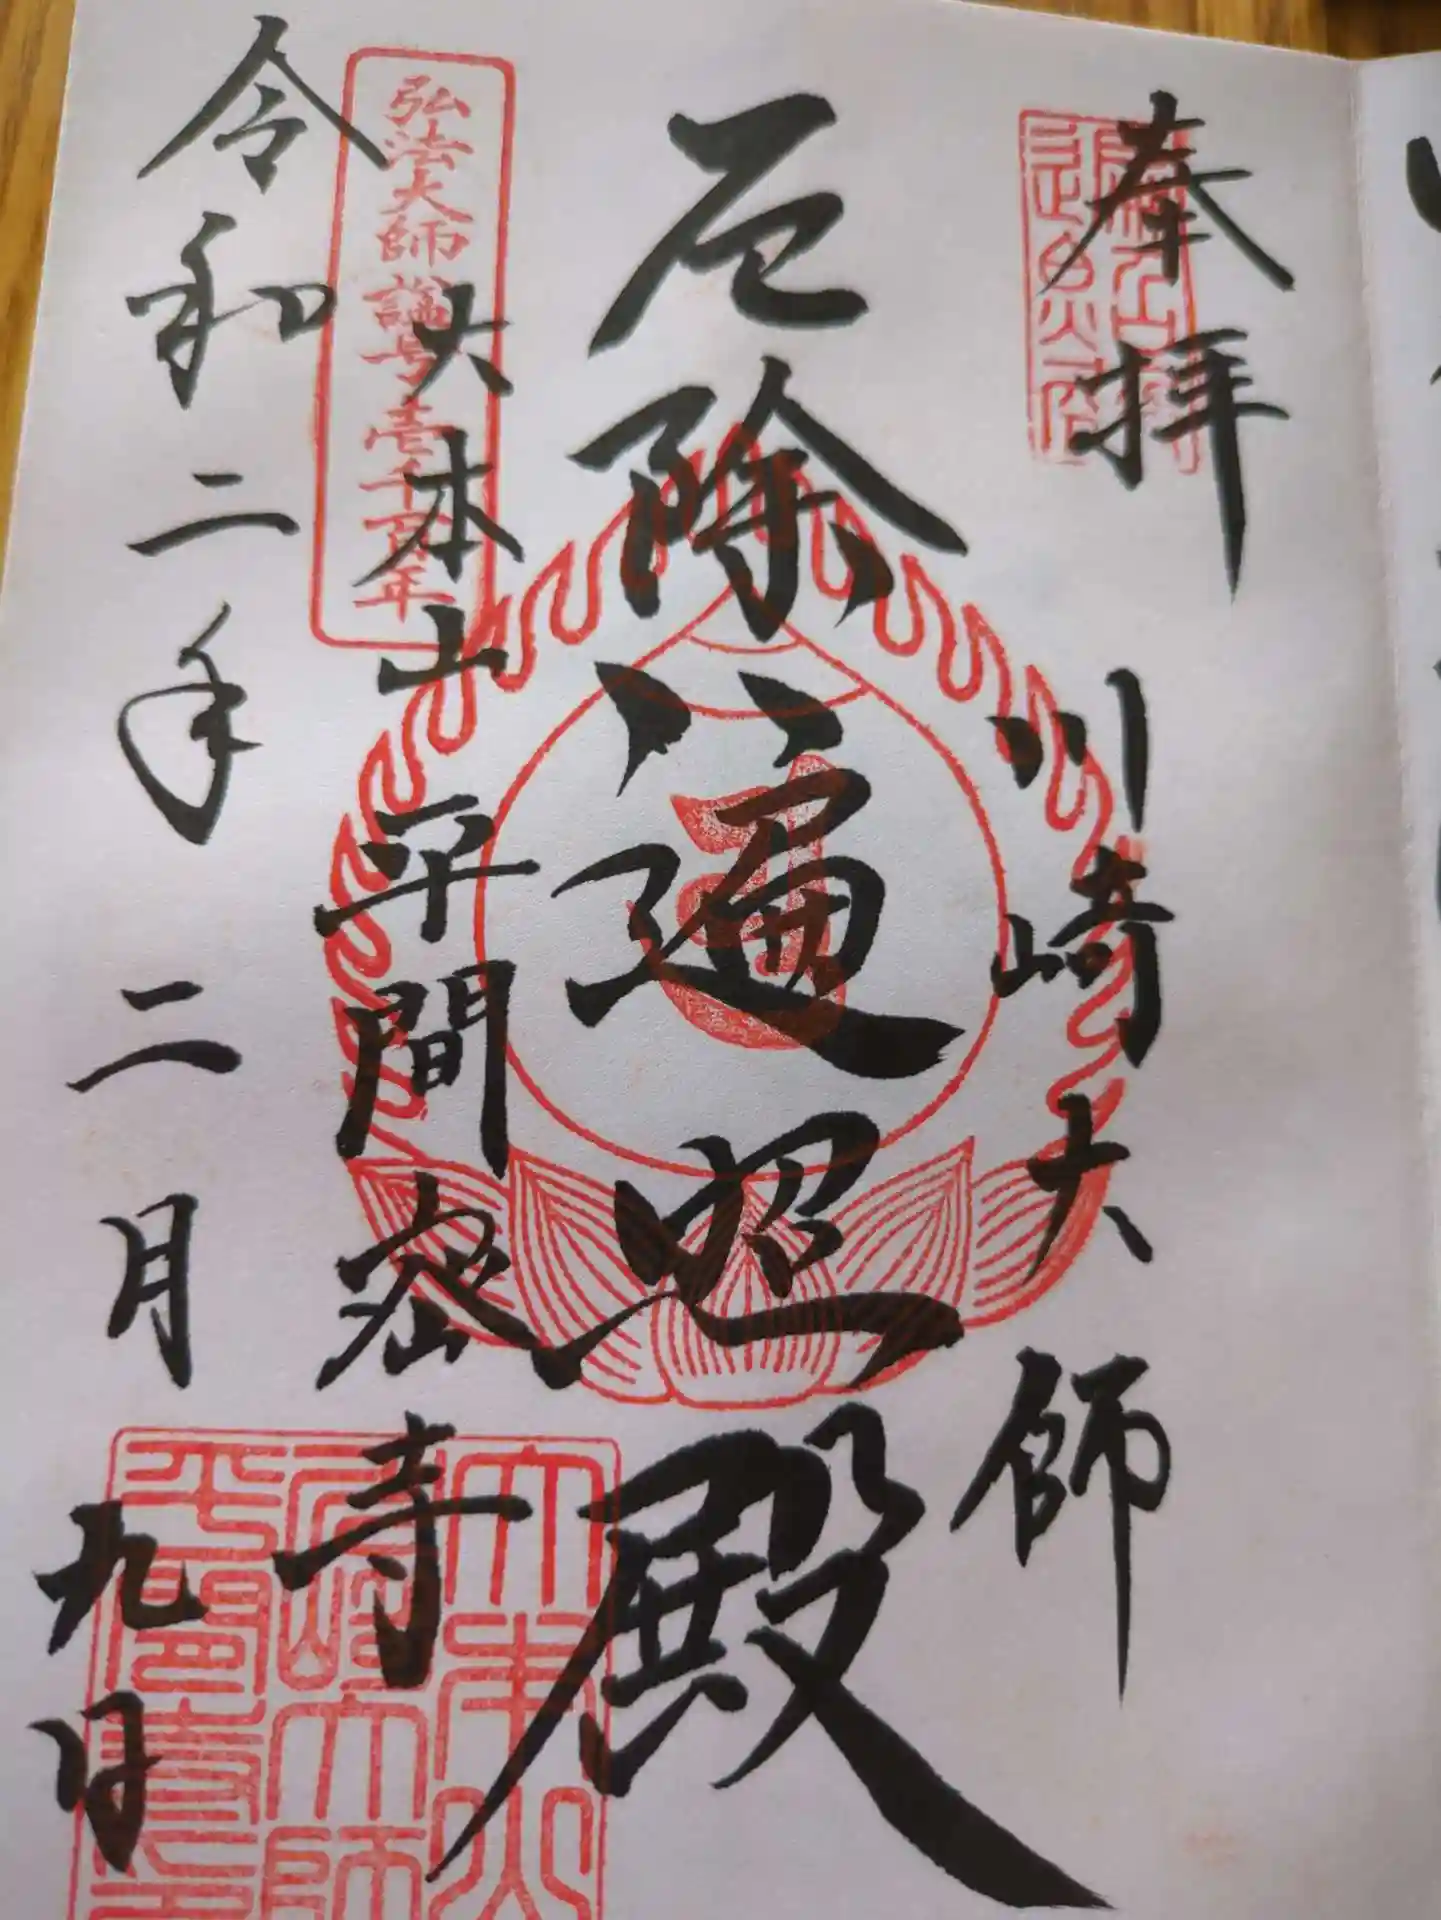 奉拝
川崎大師
厄除遍照殿
大本山平間密寺
弘法大師諡号壱千百年
令和二年二月九日